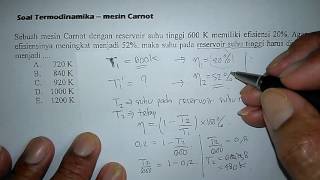 Soal Termodinamika – mesin Carnot
Sebuah mesin Carnot dengan reservoir suhu tinggi 600 K memiliki efisiensi 20%. Agar
efisiensinya meningkat menjadi 52%, maka suhu pada reservoir suhu tinggi harus
menjadi ....
A. 720 K
B. 840 K
C. 920 K
D. 1000 K
E. 1200 K
T₁ = 600K → η = 20%
T₁' = ? η₂ = 52%
T₂ → suhu pada reservoir suhu
T₂ → tetap
η = (1 - T₂/T₁) × 100%
0,2 = 1 - T₂/600
T₂/600 = 1 - 0,2
T₂/600 = 0,8
T₂ =